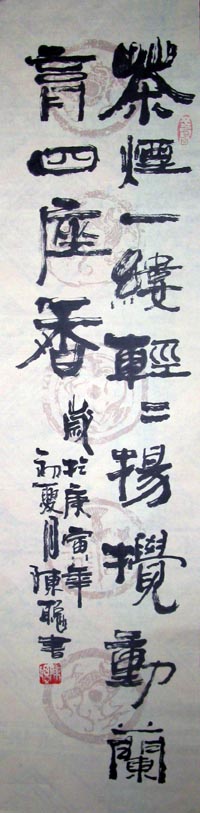 茶煙一縷輕〻揚攪動蘭
膏四座香
歲於庚寅年
初夏月陳聰書